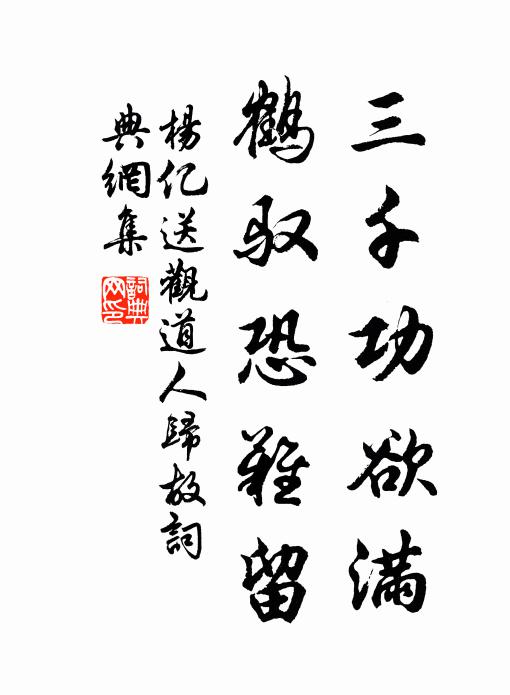 三千功欲满
鶴驭恐難留
楊亿送觀道人歸故詞
典網集
詞典网印